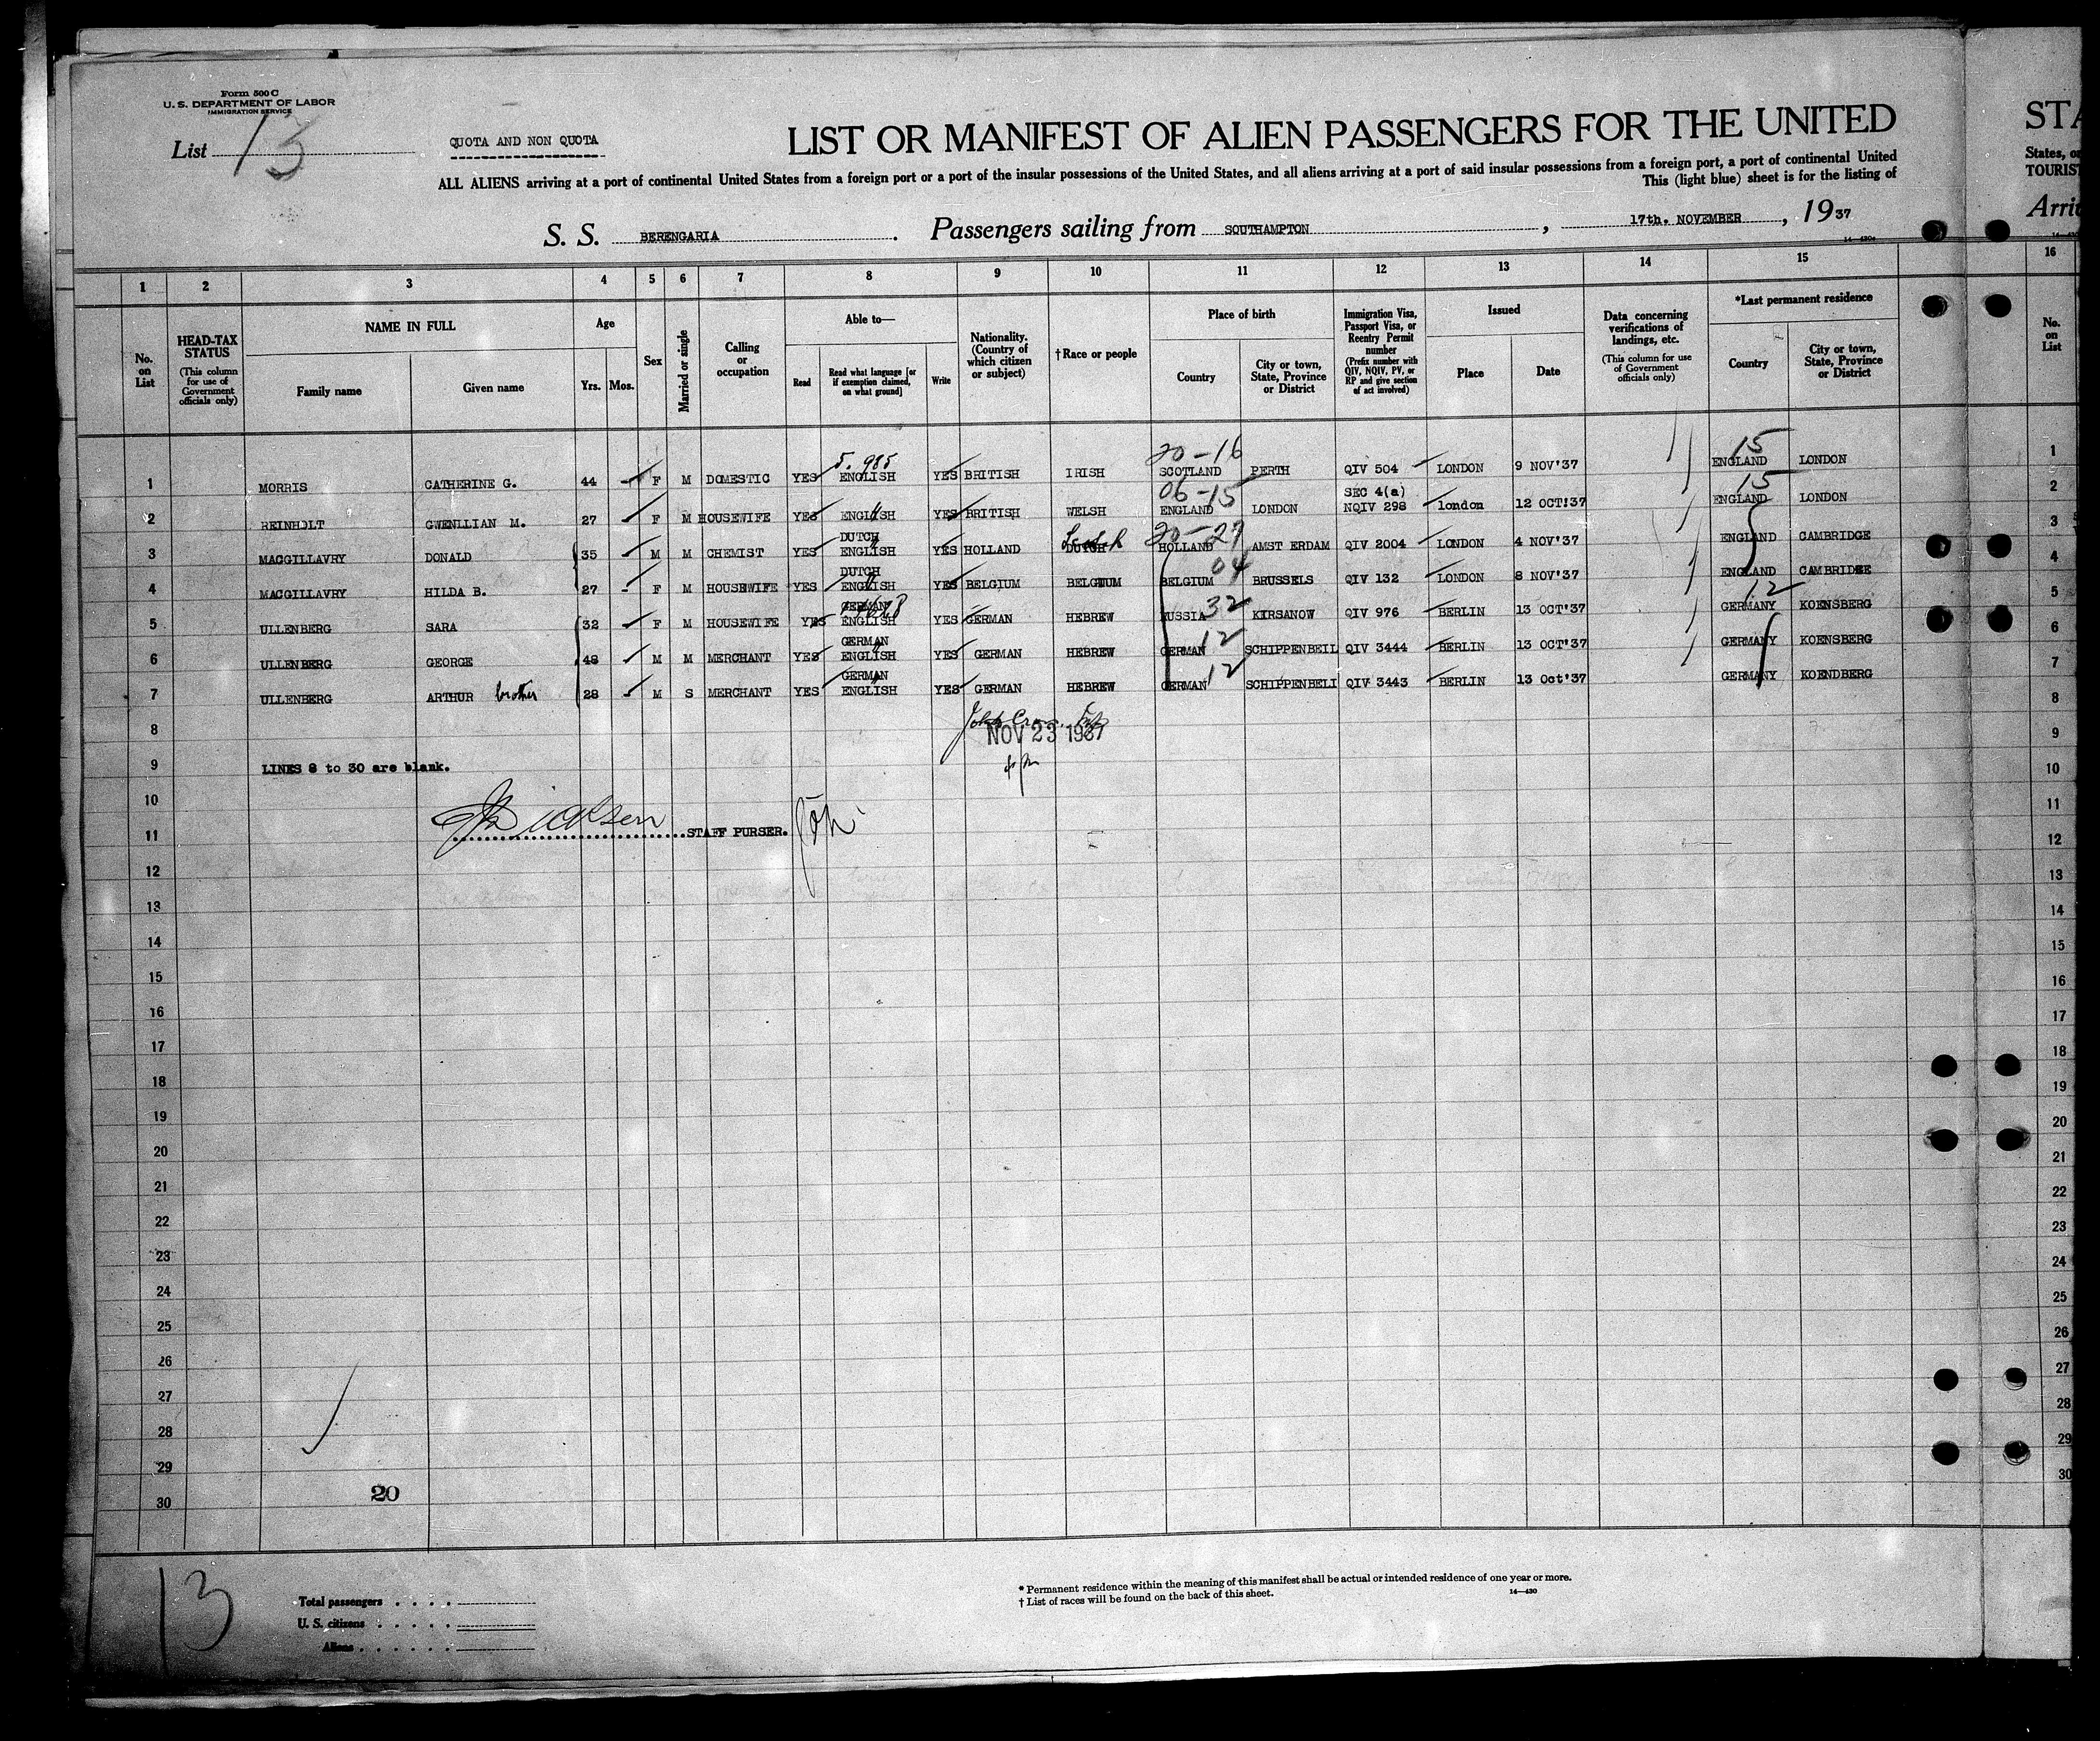 Form 500 C
U. S. DEPARTMENT OF LABOR
IMMIGRATION SERVICE
List 13
QUOTA AND NON QUOTA
LIST OR MANIFEST OF ALIEN PASSENGERS FOR THE UNITED
ALL ALIENS arriving at a port of continental United States from a foreign port or a port of the insular possessions of the United States, and all aliens arriving at a port of said insular possessions from a foreign port, a port of continental United
This (light blue) sheet is for the listing of
S. S. BERENGARIA. Passengers sailing from SOUTHAMPTON, 17th. NOVEMBER, 1937
14—430
STA
States, o
TOURIST
Arri
1 2 3 4 5 6 7 8 9 10 11 12 13 14 15 16
No. on List
HEAD-TAX STATUS
(This column for use of Government officials only)
NAME IN FULL
Family name
Given name
Age
Yrs. Mos.
Sex
Married or single
Calling or occupation
Able to—
Read
Read what language [or if exemption claimed, on what ground]
Write
Nationality. (Country of which citizen or subject)
†Race or people
Place of birth
Country
City or town, State, Province or District
Immigration Visa, Passport Visa, or Reentry Permit number
(Prefix number with QIV, NQIV, PV, or RP and give section of act involved)
Issued
Place
Date
Data concerning verifications of landings, etc.
(This column for use of Government officials only)
*Last permanent residence
Country
City or town, State, Province or District
No. on List
5.985 20-16 15
1 MORRIS CATHERINE G. 44 F M DOMESTIC YES ENGLISH YES BRITISH IRISH SCOTLAND PERTH QIV 504 LONDON 9 NOV'37 ENGLAND LONDON 1
06-15 SEC 4(a) 15
2 REINHOLT GWENLLIAN M. 27 F M HOUSEWIFE YES ENGLISH YES BRITISH WELSH ENGLAND LONDON NQIV 298 london 12 OCT'37 ENGLAND LONDON 2
DUTCH 20-27
3 MACGILLAVRY DONALD 35 M M CHEMIST YES ENGLISH YES HOLLAND DUTCH HOLLAND AMST ERDAM QIV 2004 LONDON 4 NOV'37 ENGLAND CAMBRIDGE 3
DUTCH 04
4 MACGILLAVRY HILDA B. 27 F M HOUSEWIFE YES ENGLISH YES BELGIUM BELGIUM BELGIUM BRUSSELS QIV 132 LONDON 8 NOV'37 ENGLAND CAMBRIDGE 4
GERMAN 32 12
5 ULLENBERG SARA 32 F M HOUSEWIFE YES ENGLISH YES GERMAN HEBREW RUSSIA KIRSANOW QIV 976 BERLIN 13 OCT'37 GERMANY KOENSBERG 5
GERMAN 12
6 ULLENBERG GEORGE 48 M M MERCHANT YES ENGLISH YES GERMAN HEBREW GERMAN SCHIPPENBEIL QIV 3444 BERLIN 13 OCT'37 GERMANY KOENSBERG 6
GERMAN 12
7 ULLENBERG ARTHUR brother 28 M S MERCHANT YES ENGLISH YES GERMAN HEBREW GERMAN SCHIPPENBELI QIV 3443 BERLIN 13 Oct'37 GERMANY KOENDBERG 7
8 NOV 23 1937 8
9 LINES 8 to 30 are blank. 9
10 10
11 STAFF PURSER. 11
12 12
13 13
14 14
15 15
16 16
17 17
18 18
19 19
20 20
21 21
22 22
23 23
24 24
25 25
26 26
27 27
28 28
29 29
20
30 30
13
Total passengers
U. S. citizens
Aliens
* Permanent residence within the meaning of this manifest shall be actual or intended residence of one year or more.
† List of races will be found on the back of this sheet.
14—430